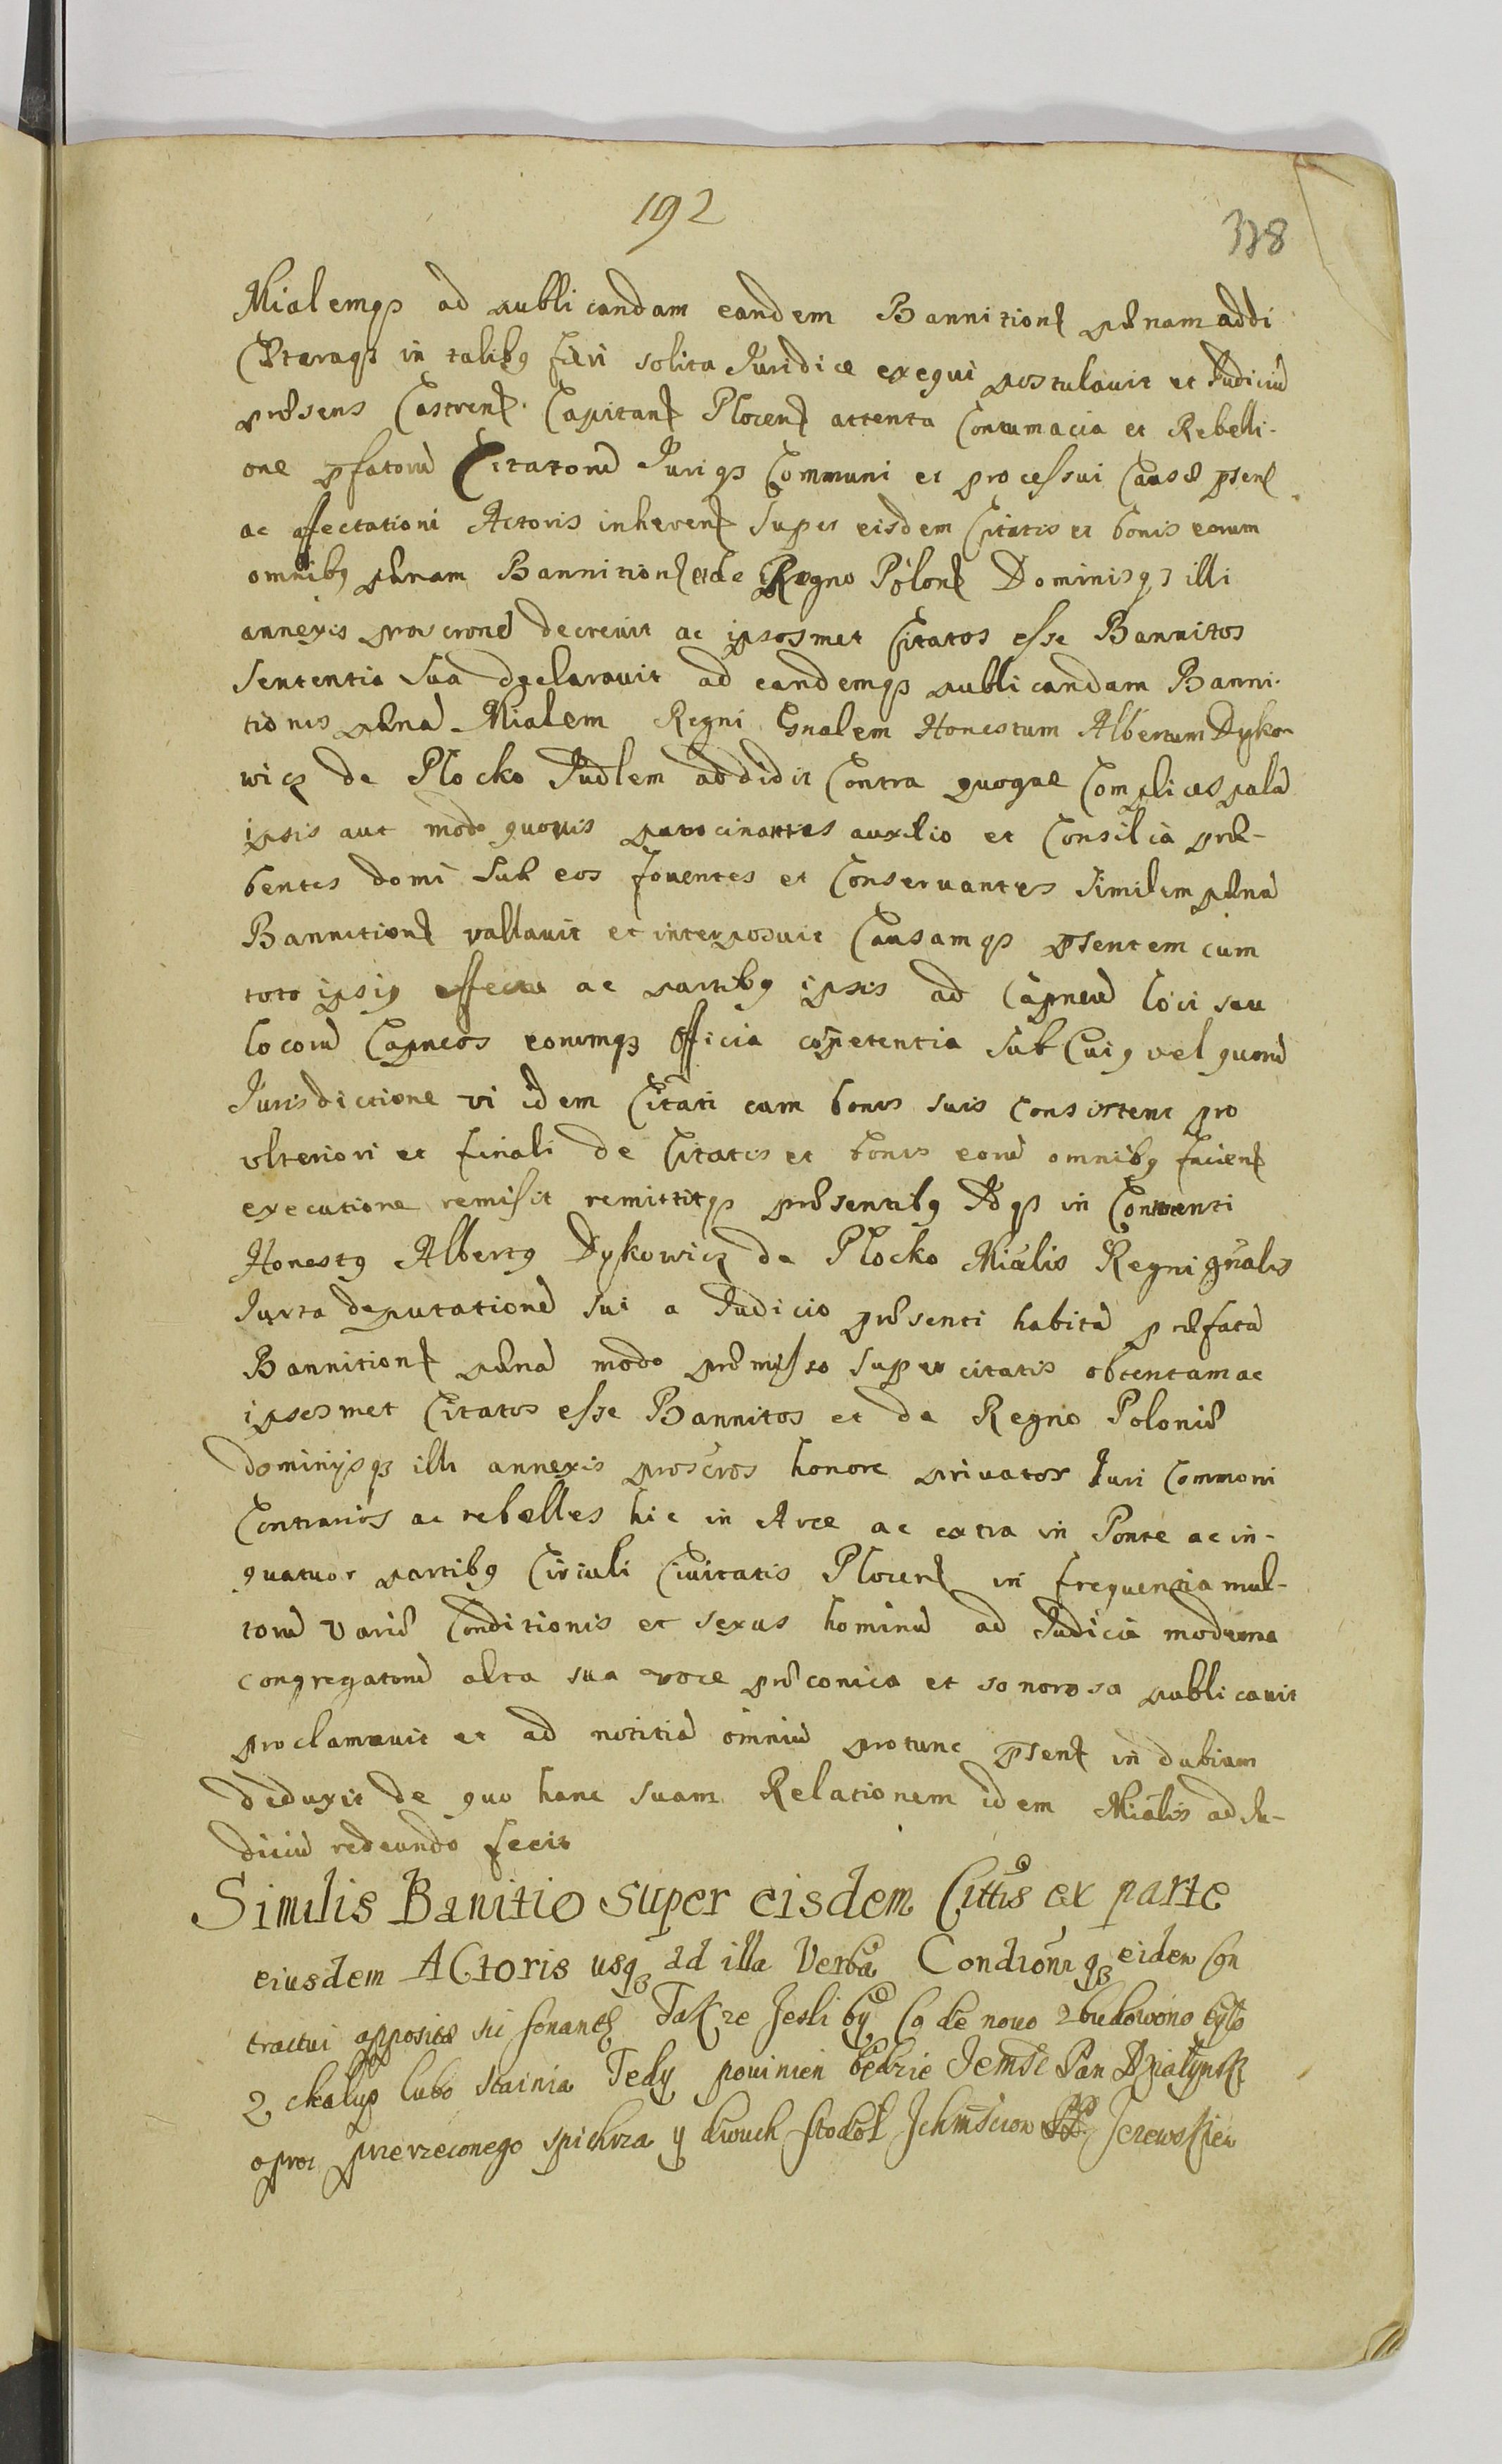 192
378
Mialemqȝ ad publicandam eandem Bannitionꝭ pœnam addi
Cæteraqȝ in talibꝯ fieri solita Juridice exequi postulauit et Judiciũ
præsens Castrenꝭ Capitanꝭ Plocenꝭ attenta Contumacia et Rebelli-
one pfatorũ Citatorũ Juriqȝ Communi et processui Causæ psenꝭ
ac affectationi Actoris inherenꝭ super eisdem Citatis et bonis eorum
omnibꝯ pœnam Bannitionꝭ et de Regno Polonꝭ Dominisqȝ illi
annexis proscronẽ decreuit ac ipsosmet Citatos esse Bannitos
Sententia sua declarauit ad eandemqȝ publicandam Banni-
tionis pœnã Mialem Regni Gnalem Honestum Albertum Dyko-
wicz de Plocko Judlem addidit Contra quoque Complices palã
ipsis aut modo quouis patrocinantes auxilio et Consilia præ-
bentes domi sub eos fouentes et Conseruantes similem pœnã
Bannitionꝭ vallauit et interposuit Causamqȝ psentem cum
toto ipsiꝯ effectu ac partibꝯ ipsis ad Capneũ loci seu
locorũ Capneos eorumqȝ Officia copetentia sub Cuiꝯ vel quorũ
Jurisdictione vi idem Citati cum bonis suis consistent pro
vlteriori et finali de Citatis et bonis eorũ omnibꝯ facienꝭ
executione remisit remittitqȝ præsentibꝯ Idqȝ in Continenti
Honestꝯ Albertꝯ Dykowicz de Plocko Mialis Regni gnalis
Juxta deputationẽ sui a Judicio præsenti habitã præfatã
Bannitionꝭ pœnã modo præmisso super citatis obtentam ac
ipsosmet Citatos esse Bannitos et de Regno Poloniæ
dominijsqȝ illi annexis proscros honore priuatos Juri Communi
Contrarios ac rebelles hic in Arce ac extra in Ponte ac in-
quatuor partibꝯ Circuli Ciuitatis Plocenꝭ in frequentia mul-
torũ variæ Conditionis et sexus hominũ ad Judicia moderna
congregatorũ alta sua voce præconica et sonorosa publicauit
proclamauit et ad notitiã omniũ protunc psenꝭ in dubiam
deduxit de quo hanc suam Relationem idem Mialis ad Ju-
diciũ redeundo fecit
Similis Banitio super eisdem Cittis ex parte
eiusdem Actoris usqȝ ad illa Verba Condioniqȝ eidem Con
tractui appositæ sic sonantꝭ Takze Jesli by Co de nouo zbudowono było
z chalup lubo stainia Tedy powinien będzie Jemsc Pan Działynsk
oproc przerzeconego spichrza y dwuch stodoł Jchmsciow PP. Jerewskiew